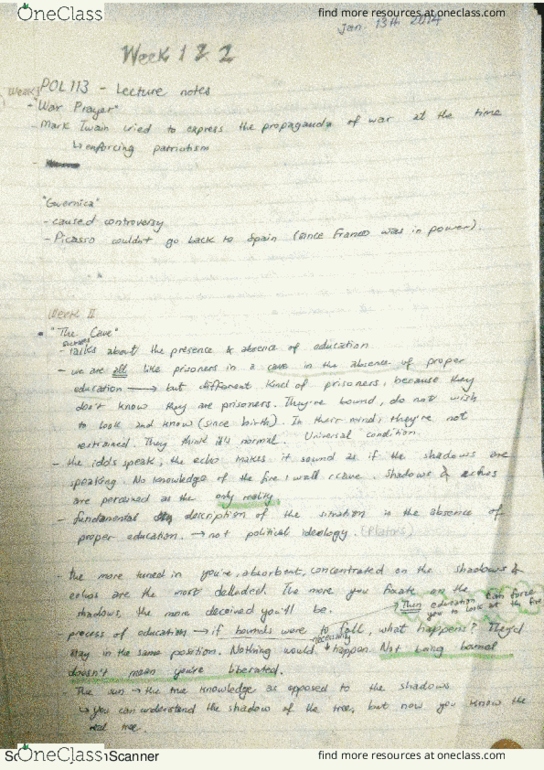 OneClass
find more resources at oneclass.com
Jan. 13th 2014
Week 1 & 2
Week I
POL113 - Lecture notes
- "War Prayer"
- Mark Twain tried to express the propaganda of war at the time
↳ enforcing patriotism
-
"Guernica"
- caused controversy
- Picasso couldn't go back to Spain (since Franco was in power).
Week II
• "The Cave"
- talks about the presence & absence of education
- we are all like prisoners in a cave in the absence of proper
education → but different kind of prisoners, because they
don't know they are prisoners. They're bound, do not wish
to look and know (since birth). In their minds they're not
restrained. They think it's normal. Universal condition.
- the idols speak, the echo makes it sound as if the shadows are
speaking. No knowledge of the fire, wall, cave. Shadows & echos
are perceived as the only reality
- fundamental description of the situation in the absence of
proper education. → not political ideology. (Plato's)
- the more tuned in you're, absorbent, concentrated on the shadows &
echos are the most deluded. The more you fixate on the
shadows, the more deceived you'll be.
→ Then education can force
you to look at the fire
process of education → if bounds were to fall, what happens? They'd
stay in the same position. Nothing would necessarily happen. Not being bound
doesn't mean you're liberated.
- The sun → the true knowledge as opposed to the shadows
↳ you can understand the shadow of the tree, but now you know the
real tree.
OneClass
Scanner
find more resources at oneclass.com